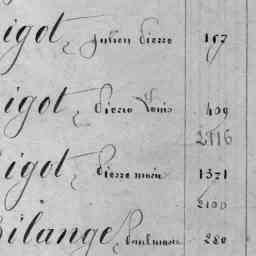 igot, Julien Pierre 157
igot, Pierre Louis 409
2116
igot, Pierre marie 1371
2100
Bilange, Paul marie 280